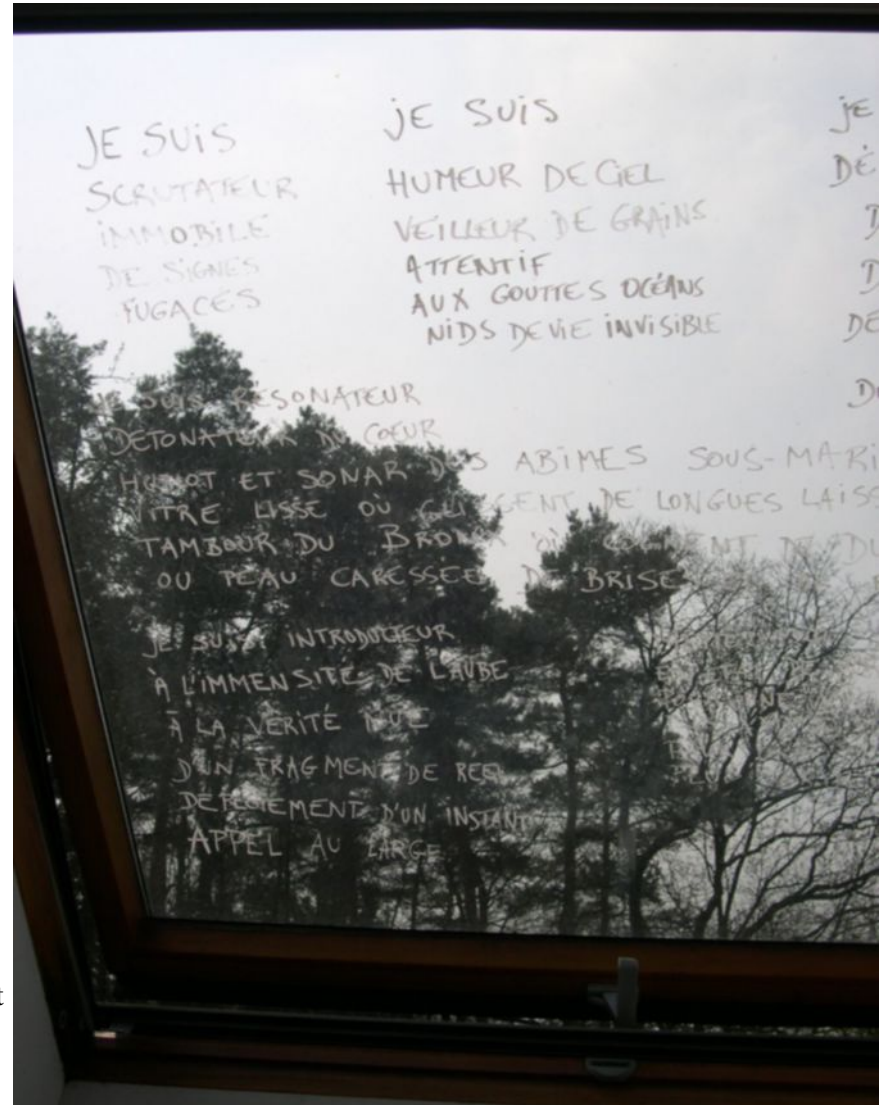 JE SUIS
SCRUTATEUR
IMMOBILE
DE SIGNES
FUGACES
JE SUIS
HUMEUR DE CIEL
VEILLEUR DE GRAINS
ATTENTIF
AUX GOUTTES OCÉANS
NIDS DE VIE INVISIBLE
JE
JE SUIS RESONATEUR
DÉTONATEUR DU COEUR
ET SONAR DES ABIMES SOUS-MARI
VITRE LISSE OÙ GLISSENT DE LONGUES LAISS
TAMBOUR DU BRONX OÙ
OU PEAU CARESSEE DE BRISE
JE SUIS INTRODUCTEUR
À L'IMMENSITÉ DE L'AUBE
À LA VÉRITÉ NUE
D'UN FRAGMENT DE REEL
DÉPLOIEMENT D'UN INSTANT
APPEL AU LARGE
t